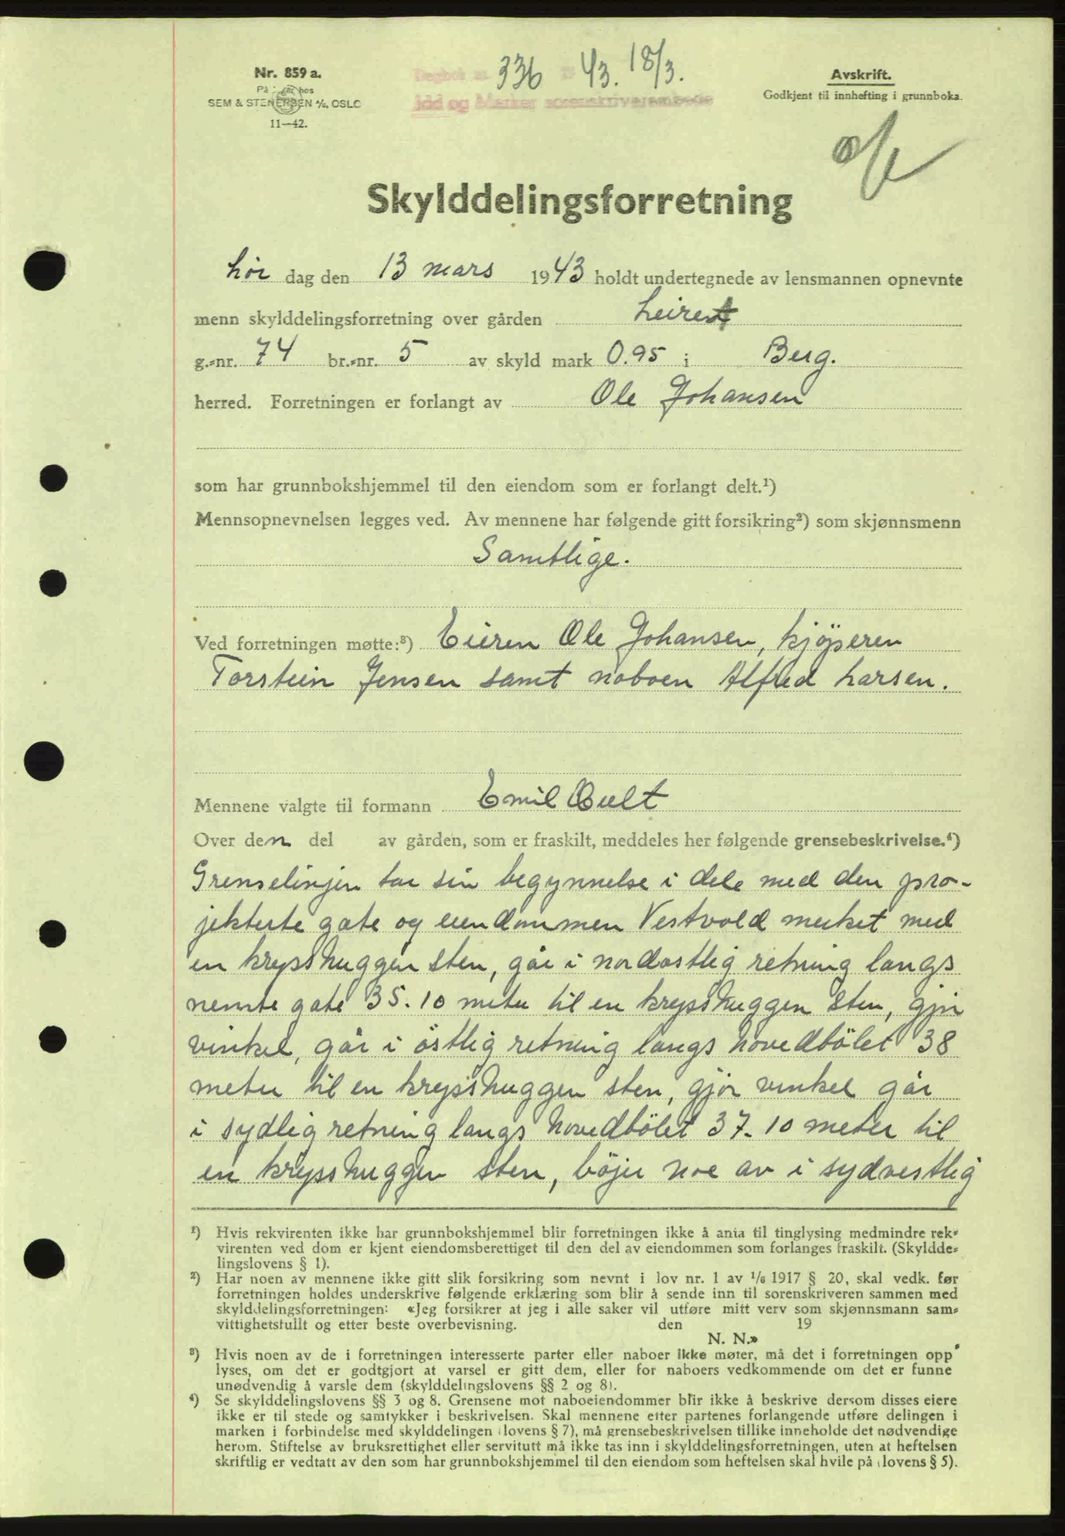 Nr. 859 a.
SEM & STENERSEN A/S, OSLO
11—42.
Dagbok nr. 336 43. 18/3.
Idd og Marker sorenskriverembede
Avskrift.
Godkjent til innhefting i grunnboka.
Skylddelingsforretning
Lør dag den 13 mars 1943 holdt undertegnede av lensmannen opnevnte
menn skylddelingsforretning over gården Leiret
g.-nr. 74 br.-nr. 5 av skyld mark 0.95 i Berg.
herred. Forretningen er forlangt av Ole Johansen
som har grunnbokshjemmel til den eiendom som er forlangt delt.¹)
Mennsopnevnelsen legges ved. Av mennene har følgende gitt forsikring²) som skjønnsmenn
Samtlige.
Ved forretningen møtte:³) Eieren Ole Johansen, kjøperen
Torstein Jensen samt naboen Alfred Larsen.
Mennene valgte til formann Emil Oult
Over den del av gården, som er fraskilt, meddeles her følgende grensebeskrivelse.⁴)
Grenselinjen tar sin begynnelse i dele med den pro-
jekterte gate og eiendommen Vestvold merket med
en krysshuggen sten, går i nordøstlig retning langs
nevnte gate 35.10 meter til en krysshuggen sten, gjør
vinkel, går i østlig retning langs hovedbølet 38
meter til en krysshuggen sten, gjør vinkel går
i sydlig retning langs hovedbølet 37.10 meter til
en krysshuggen sten, bøjer noe av i sydvestlig
¹) Hvis rekvirenten ikke har grunnbokshjemmel blir forretningen ikke å anta til tinglysing medmindre rek-
virenten ved dom er kjent eiendomsberettiget til den del av eiendommen som forlanges fraskilt. (Skyldde-
lingslovens § 1).
²) Har noen av mennene ikke gitt slik forsikring som nevnt i lov nr. 1 av 1/6 1917 § 20, skal vedk. før
forretningen holdes underskrive følgende erklæring som blir å sende inn til sorenskriveren sammen med
skylddelingsforretningen: «Jeg forsikrer at jeg i alle saker vil utføre mitt verv som skjønnsmann sam-
vittighetsfullt og etter beste overbevisning. den 19
N. N.»
³) Hvis noen av de i forretningen interesserte parter eller naboer ikke møter, må det i forretningen opp-
lyses, om det er godtgjort at varsel er gitt dem, eller for naboers vedkommende om det er funne
unødvendig å varsle dem (skylddelingslovens §§ 2 og 8).
⁴) Se skylddelingslovens §§ 3 og 8. Grensene mot naboeiendommer blir ikke å beskrive dersom disses eiere
ikke er til stede og samtykker i beskrivelsen. Skal mennene etter partenes forlangende utføre delingen i
marken i forbindelse med skylddelingen (lovens § 7), må grensebeskrivelsen tillike inneholde det nødvendige
herom. Stiftelse av bruksrettighet eller servitutt må ikke tas inn i skylddelingsforretningen, uten at heftelsen
skriftlig er vedtatt av den som har grunnbokshjemmel til den eiendom som heftelsen skal hvile på (lovens § 5).